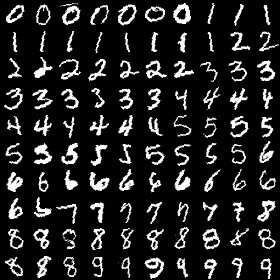 0 0 0 0 0 0 0 1 1 1
1 1 1 1 1 1 1 1 2 2
2 2 2 2 2 2 2 3 3 3
3 3 3 3 3 3 4 4 4 4
4 4 4 4 4 4 5 5 5 5
5 5 5 5 5 5 5 5 5 6
6 6 6 6 6 6 6 6 6 6
6 6 7 7 7 7 7 7 7 8
8 8 8 8 8 8 8 8 8 8
8 8 9 9 9 9 9 9 9 9